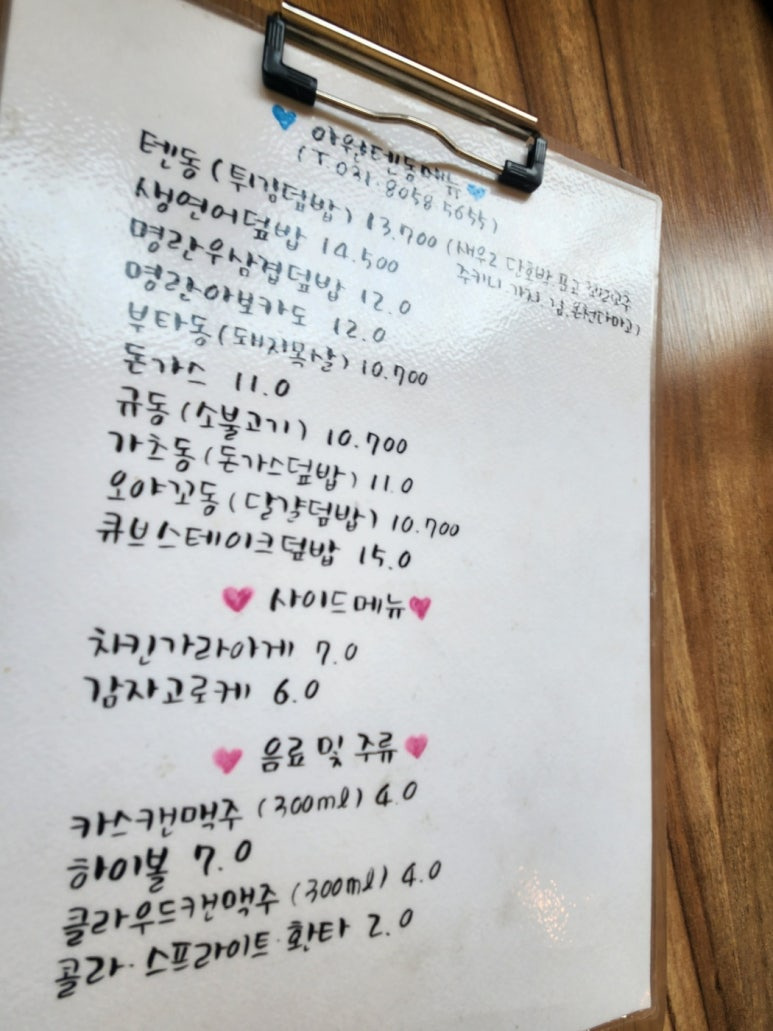 텐동메뉴
(T 031.8058 5655)
텐동 (튀김덥밥) 13,700 (새우2 단호박 표고
주키니 가지. 김. 온센다마고)
생연어덮밥 14.500
명란우삼겹덮밥 12.0
명란아보카도 12.0
부타동 (돼지목살) 10.700
돈가스 11.0
규동 (소불고기) 10.700
가츠동 (돈가스덮밥) 11.0
오야꼬동 (달걀덮밥) 10.700
큐브스테이크덮밥 15.0
사이드메뉴
치킨가라아게 7.0
감자고로케 6.0
음료 및 주류
카스캔맥주 (300ml) 4.0
하이볼 7.0
클라우드캔맥주 (300ml) 4.0
콜라·스프라이트·환타 2.0